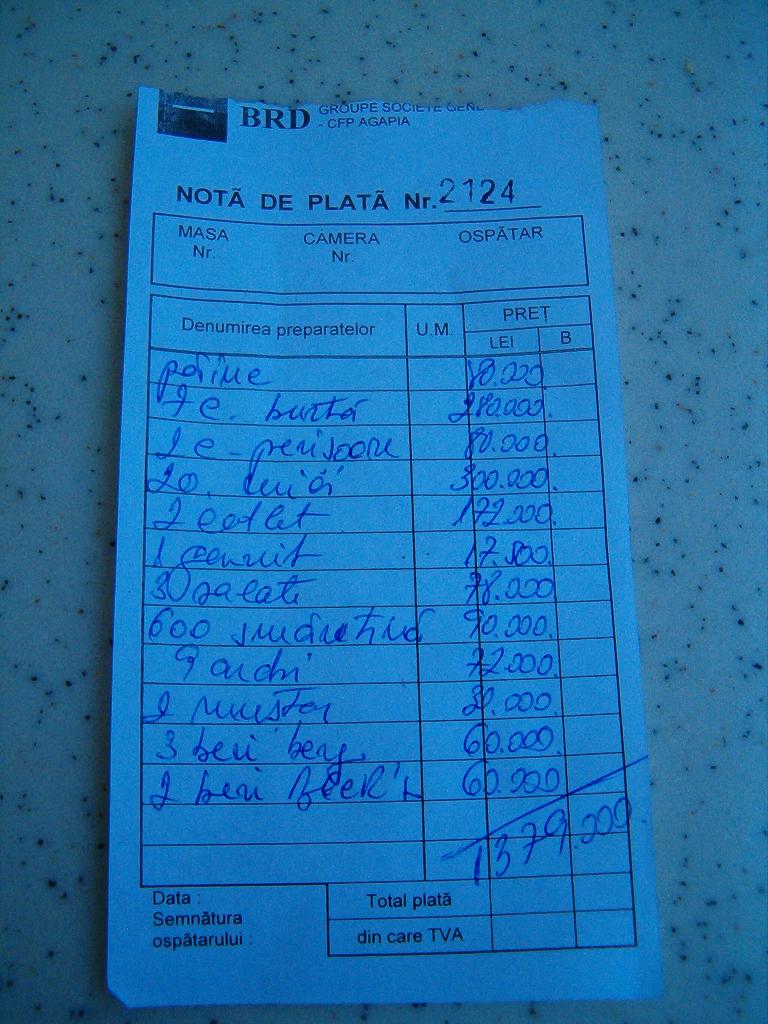 BRD GROUPE SOCIETE GENE
- CFP AGAPIA
NOTÃ DE PLATÃ Nr. 2124
MASA Nr. CAMERA Nr. OSPÃTAR
Denumirea preparatelor U.M. PREŢ
LEI B
pâine
7 c. burtă 280.000
2 c. perisoare 80.000
20 mici 300.000
2 cotlet 172.000
1 17.500
salate 78.000
600 smântână 90.000
9 ardei 72.000
2 mustar
3 beri berg 60.000
2 beri BECK'S 60.000
1379.000
Data :
Semnãtura
ospãtarului :
Total platã
din care TVA